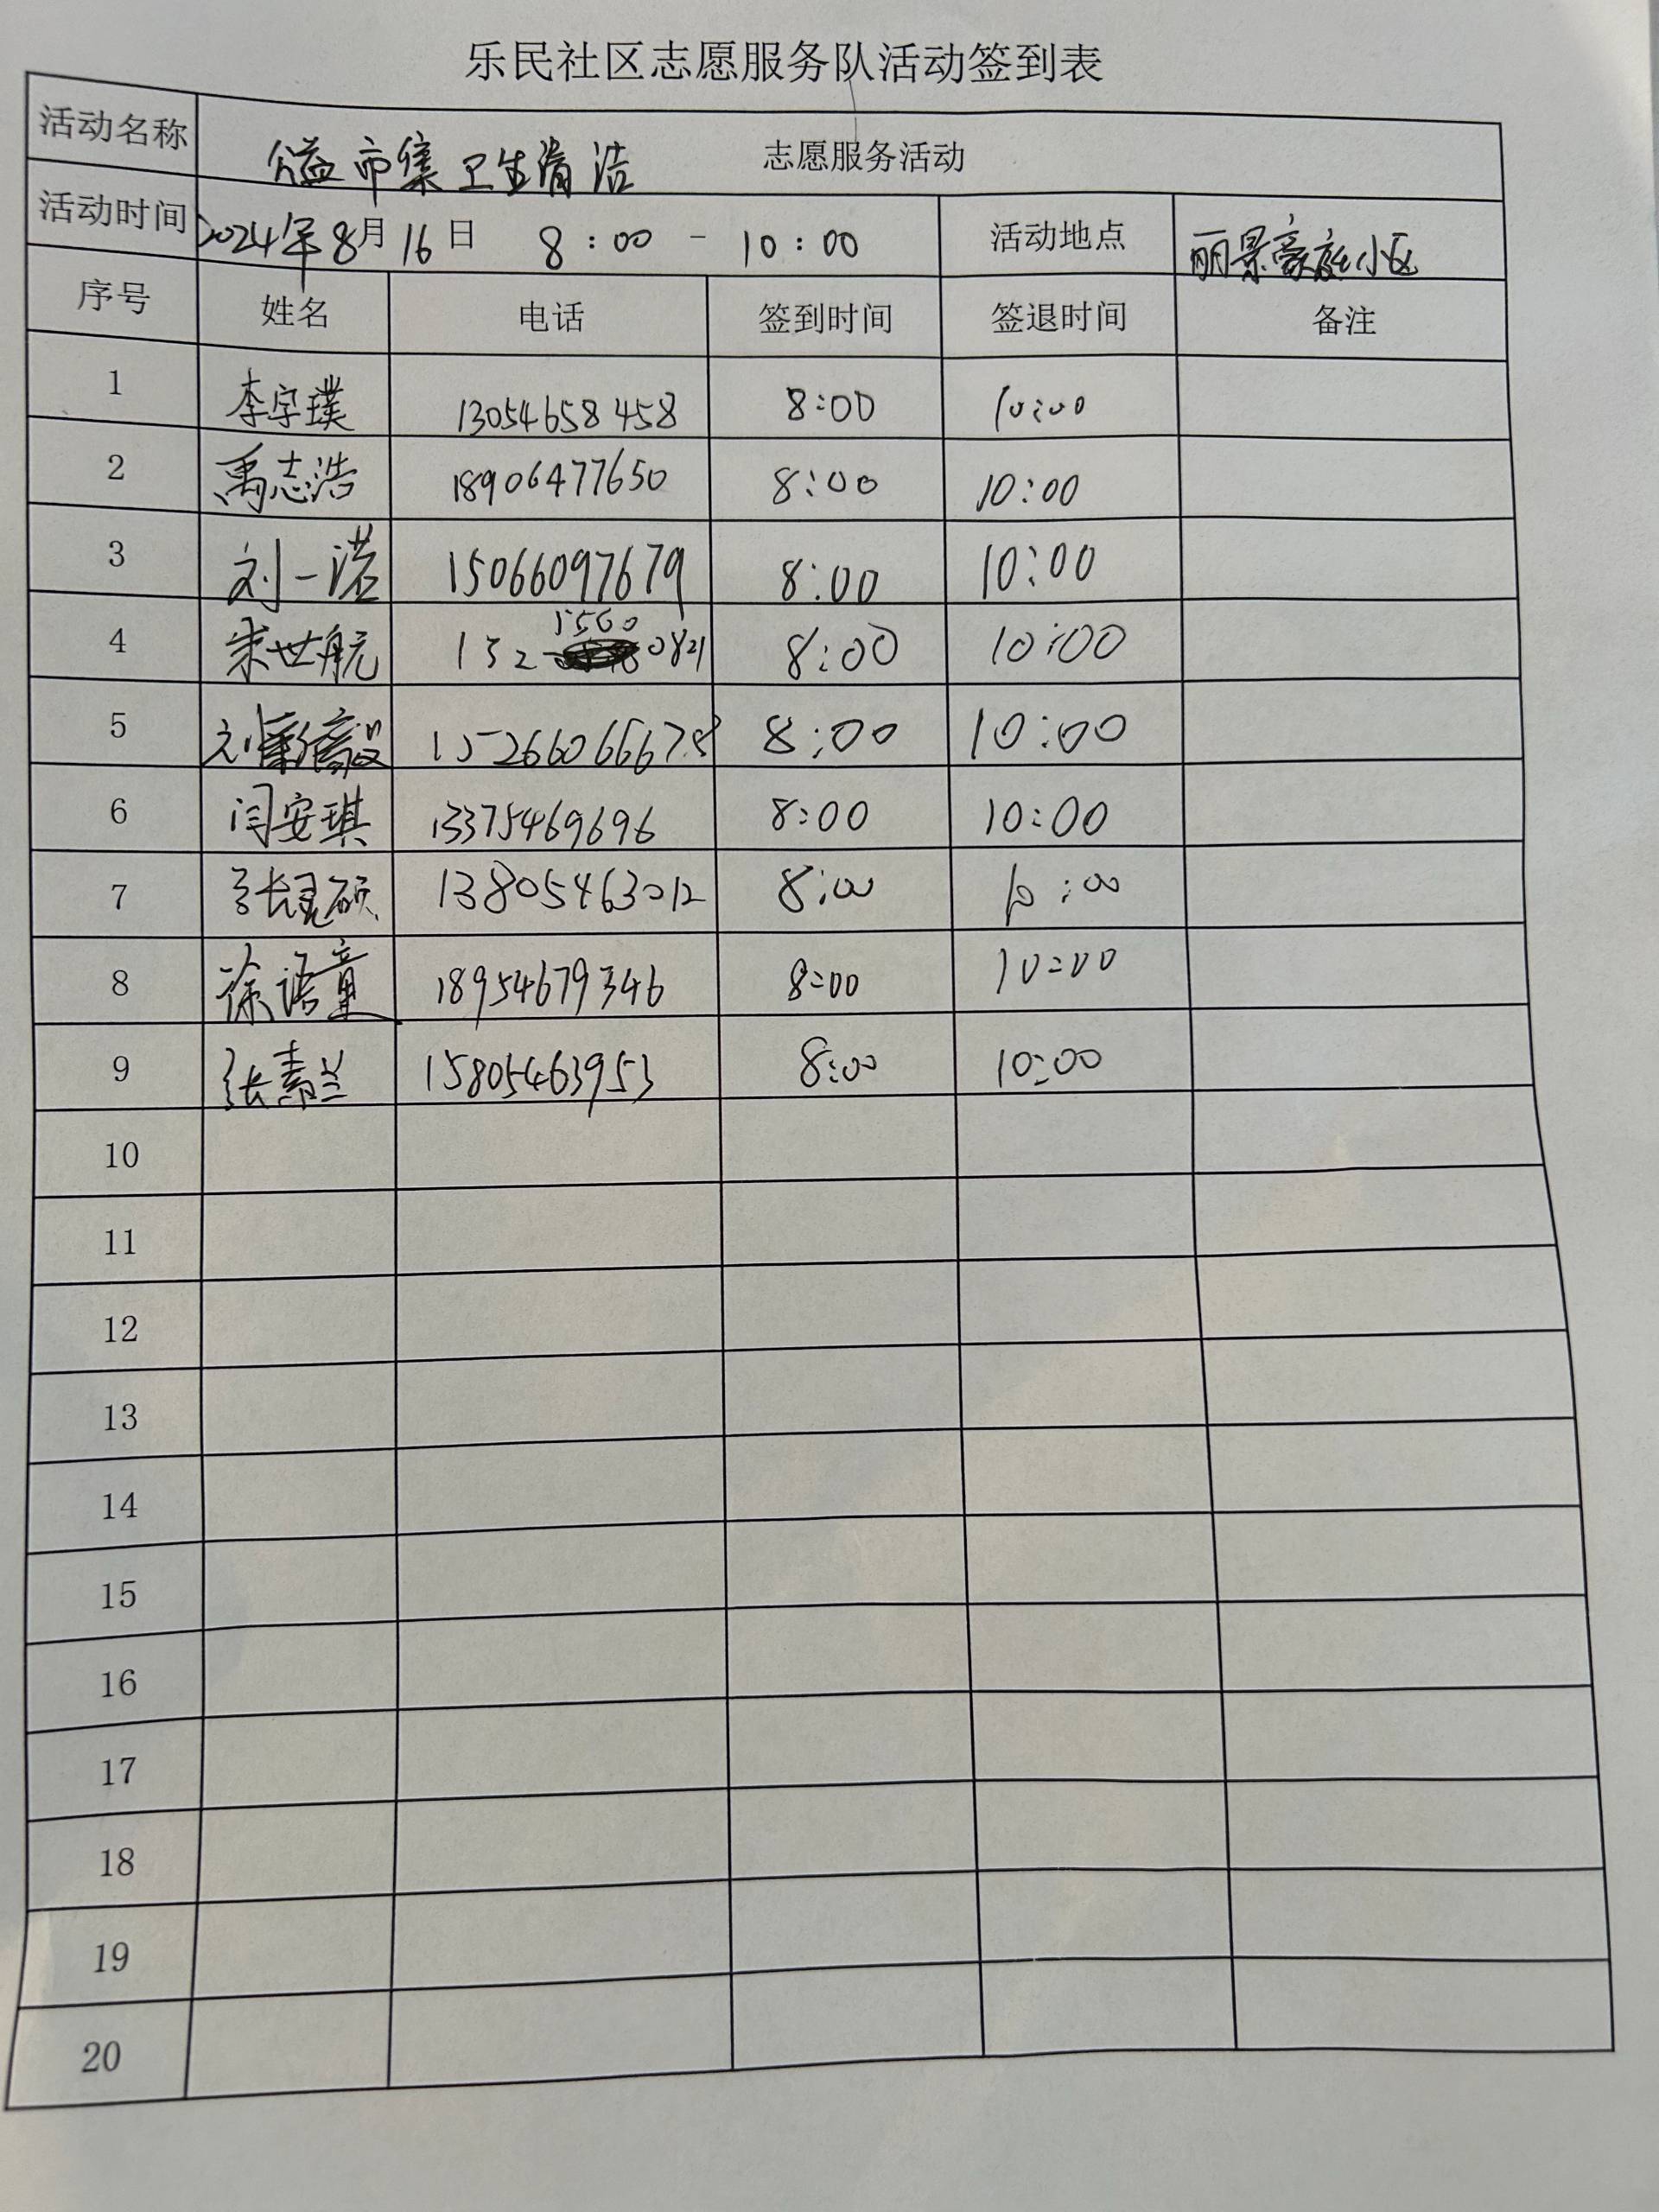 乐民社区志愿服务队活动签到表
活动名称 公益市集卫生清洁 志愿服务活动
活动时间 2024年8月16日 8:00-10:00 活动地点 丽景豪庭小区
序号 姓名 电话 签到时间 签退时间 备注
1 李宇璞 13054658458 8:00 10:00
2 禹志浩 18906477650 8:00 10:00
3 刘一诺 15066097679 8:00 10:00
4 世航 132 1560 0821 8:00 10:00
5 刘 8:00 10:00
6 闫安琪 13375469696 8:00 10:00
7 张 硕 13805463012 8:00 10:00
8 徐语童 18954679346 8:00 10:00
9 张素兰 15805463953 8:00 10:00
10
11
12
13
14
15
16
17
18
19
20